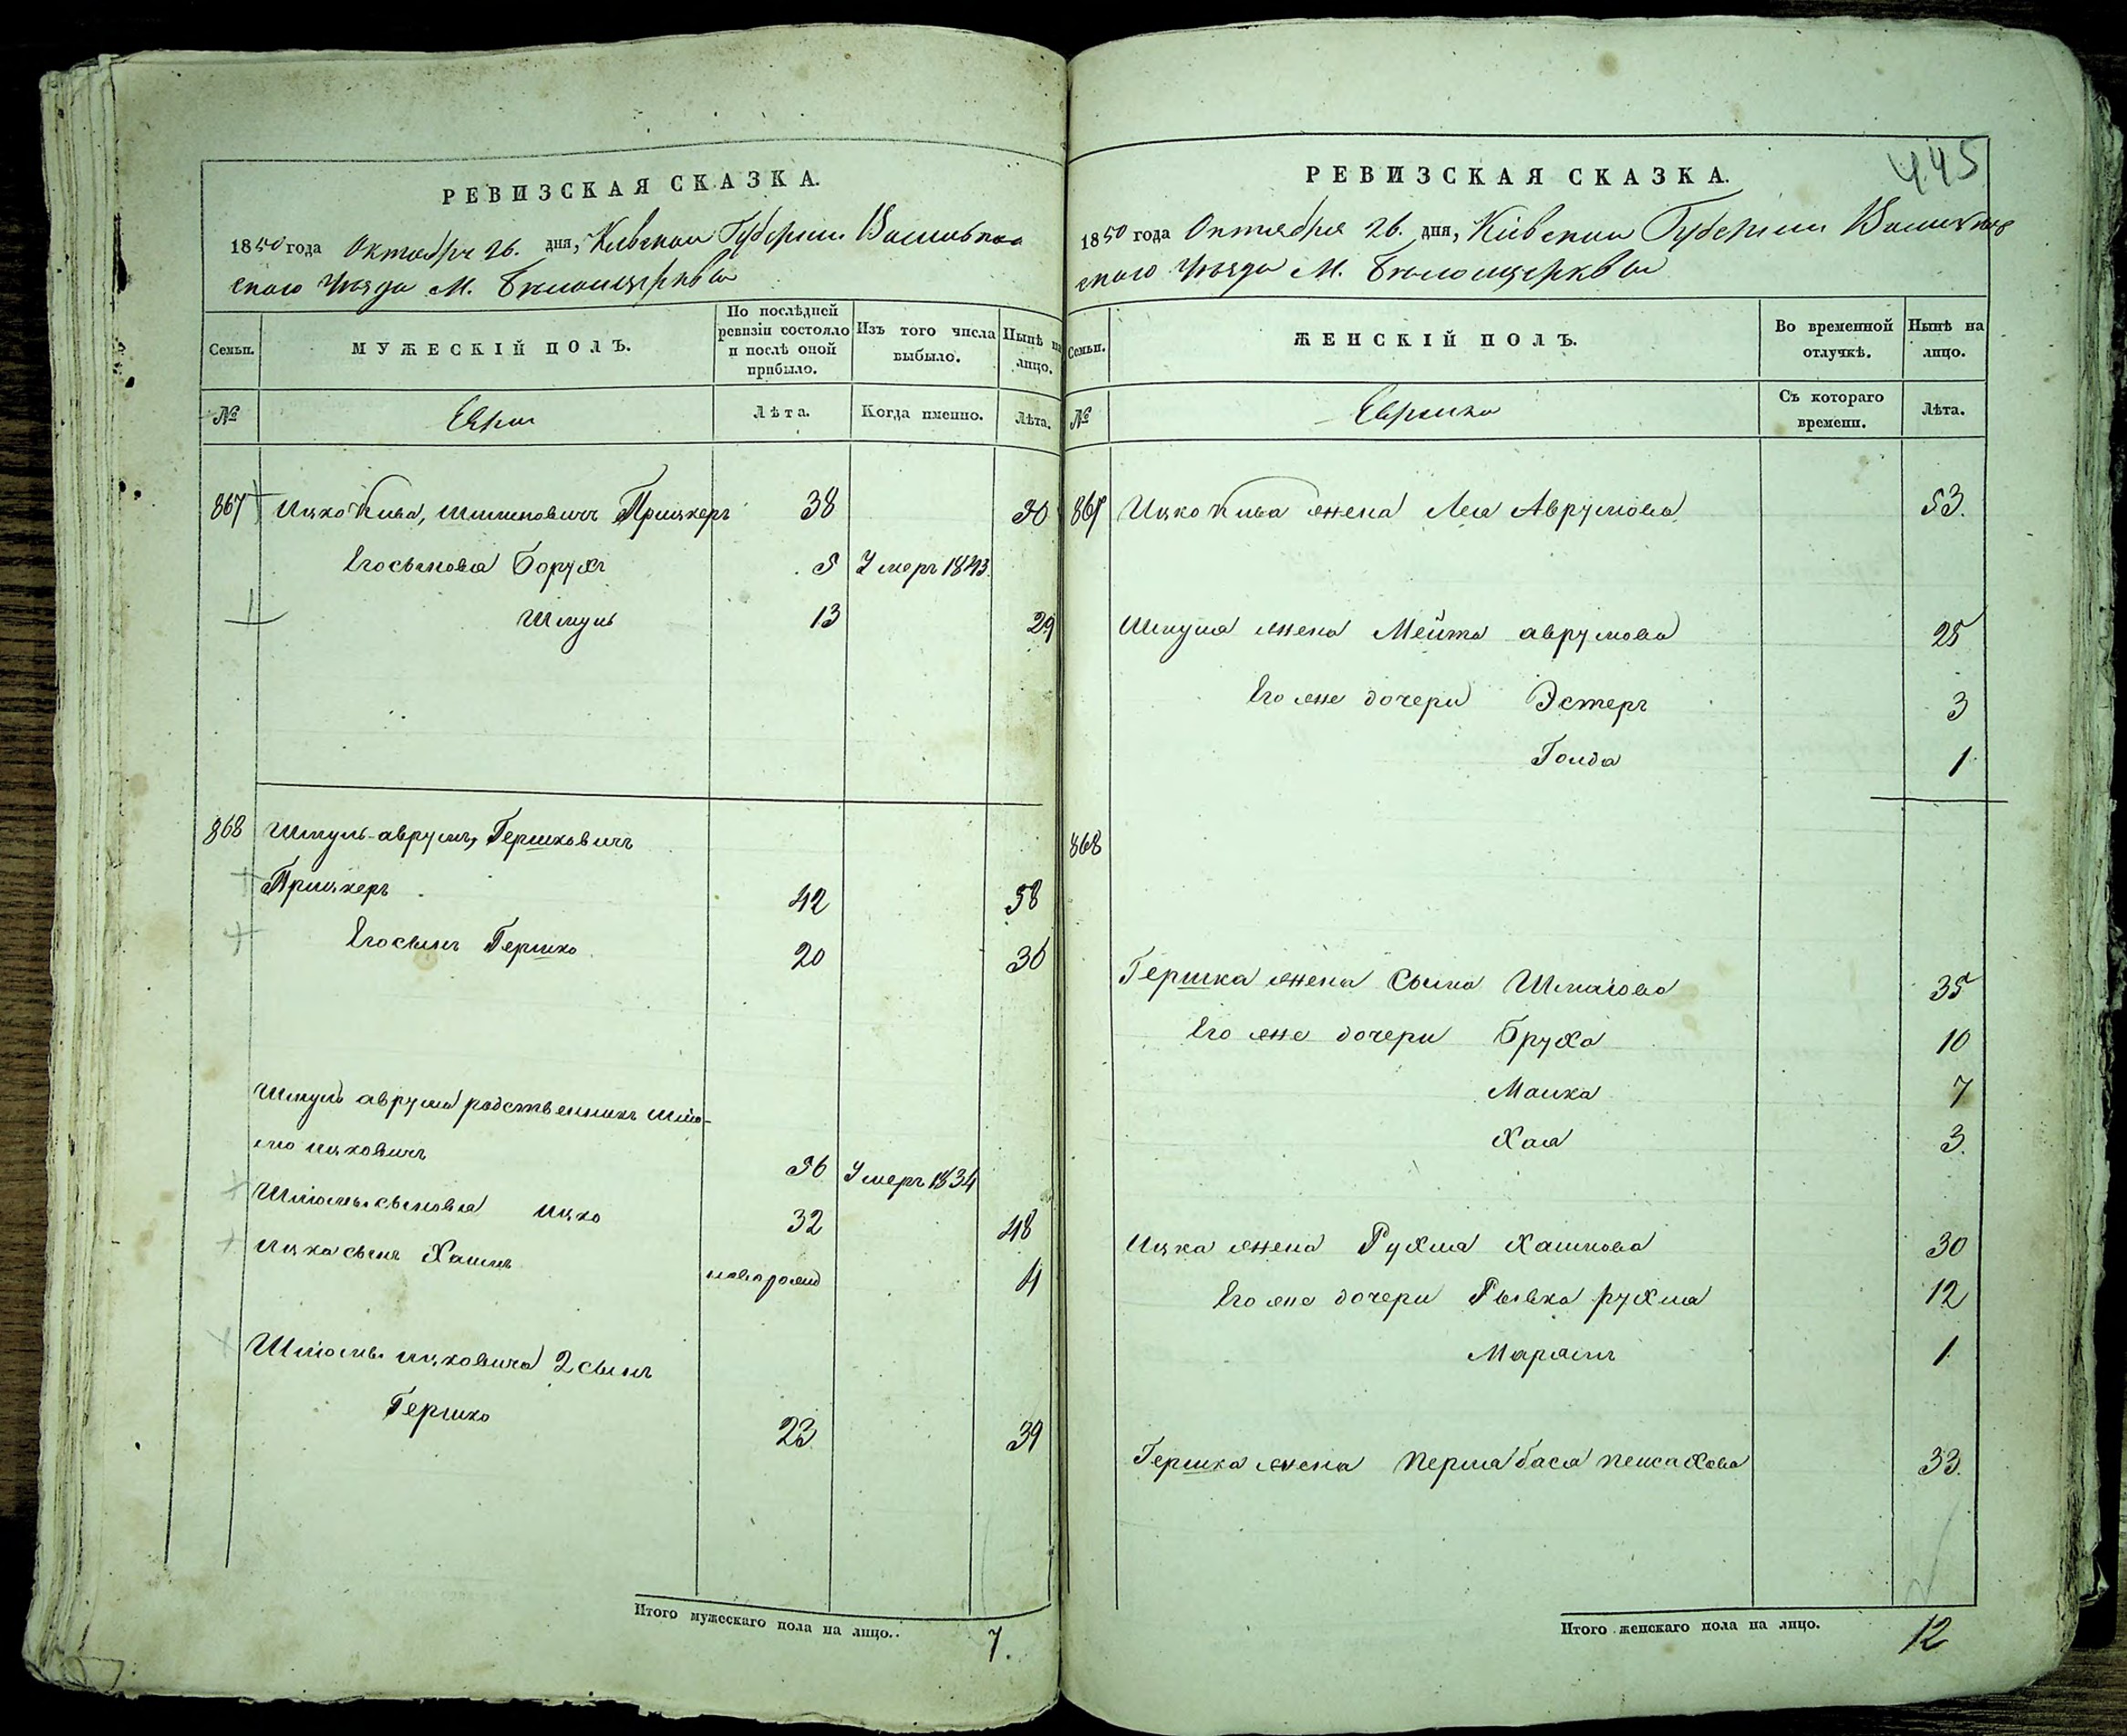 РЕВИЗСКАЯ СКАЗКА.
1850 года Октября 26. дня, Кіевской Губерніи Васильков
скаго Уѣзда М. Бѣлоцерквы
Семьи.
МУЖЕСКІЙ ПОЛЪ.
По послѣдней ревизіи состояло и послѣ оной прибыло.
Изъ того числа выбыло.
Нынѣ на лицо.
№
Евреи
Лѣта.
Когда именно.
Лѣта.
867 Ицко Кива, Шмулиовичъ Прицкеръ 38 50
Его сыновья Борухъ 5 Умеръ 1843.
Шмуль 13 29
868 Шмуль-аврумъ, Гершковичъ
Прицкеръ 42 58
Его сынъ Гершко 20 36
Шмуль аврума родственникъ Шлио-
мо ицковичъ 56 Умеръ 1834
Шлиомы сыновья Ицко 32 48
Ицка сынъ Хаимъ новорожд 4
Шлиомы ицковича 2 сынъ
Гершко 23 39
Итого мужескаго пола на лицо.. 7.
445
РЕВИЗСКАЯ СКАЗКА.
1850 года Октября 26. дня, Кіевской Губерніи Васильков
скаго Уѣзда М. Бѣлоцерквы
Семьи.
ЖЕНСКІЙ ПОЛЪ.
Во временной отлучкѣ.
Нынѣ на лицо.
№
Еврейки
Съ котораго времени.
Лѣта.
867 Ицко Кива жена Лея Аврумова 53.
Шмуля жена Мейта аврумова 25
Его же дочери Эстеръ 3
Голда 1
868
Гершка жена Сыма Шмаіова 35
Его же дочери Бруха 10
Малка 7
Хая 3.
Ицка жена Рухля Хаимова 30
Его же дочери Рывка рухля 12
Марьямъ 1
Гершка жена Перла бася пейсахова 33.
Итого женскаго пола на лицо. 12